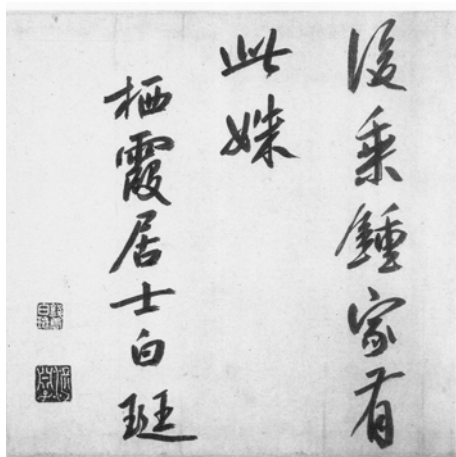 後乗鍾家有
此姝
栖霞居士白珽